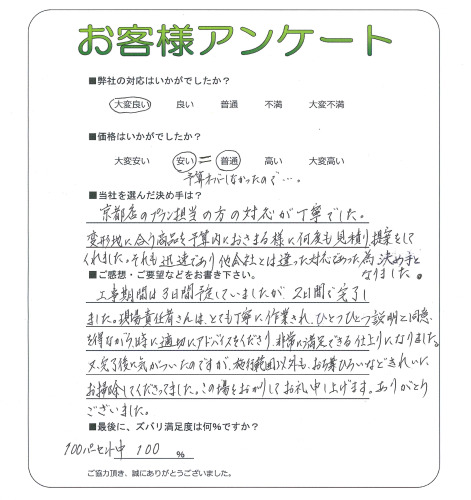 お客様アンケート
■弊社の対応はいかがでしたか？
大変良い 良い 普通 不満 大変不満
■価格はいかがでしたか？
大変安い 安い = 普通 高い 大変高い
予算オーバーしなかったので…。
■当社を選んだ決め手は？
京都店のプラン担当の方の対応が丁寧でした。
変形地に合う商品を予算内におさまる様に何度も見積り提案をして
くれました。それも迅速であり他会社とは違った対応であった為決め手と
なりました。
■ご感想・ご要望などをお書き下さい。
工事期間は3日間予定していましたが、2日間で完了し
ました。現場責任者さんは、とても丁寧に作業され、ひとつひとつ説明と同意
を得ながら時に適切にアドバイスをくださり、非常に満足できる仕上りになりました。
又、完了後に気がついたのですが、施行範囲以外も、お葉ひろいなどきれいに
お掃除してくださってました。この場をおかりしてお礼申し上げます。ありがとう
ございました。
■最後に、ズバリ満足度は何%ですか？
100パーセント中 100 %
ご協力頂き、誠にありがとうございました。